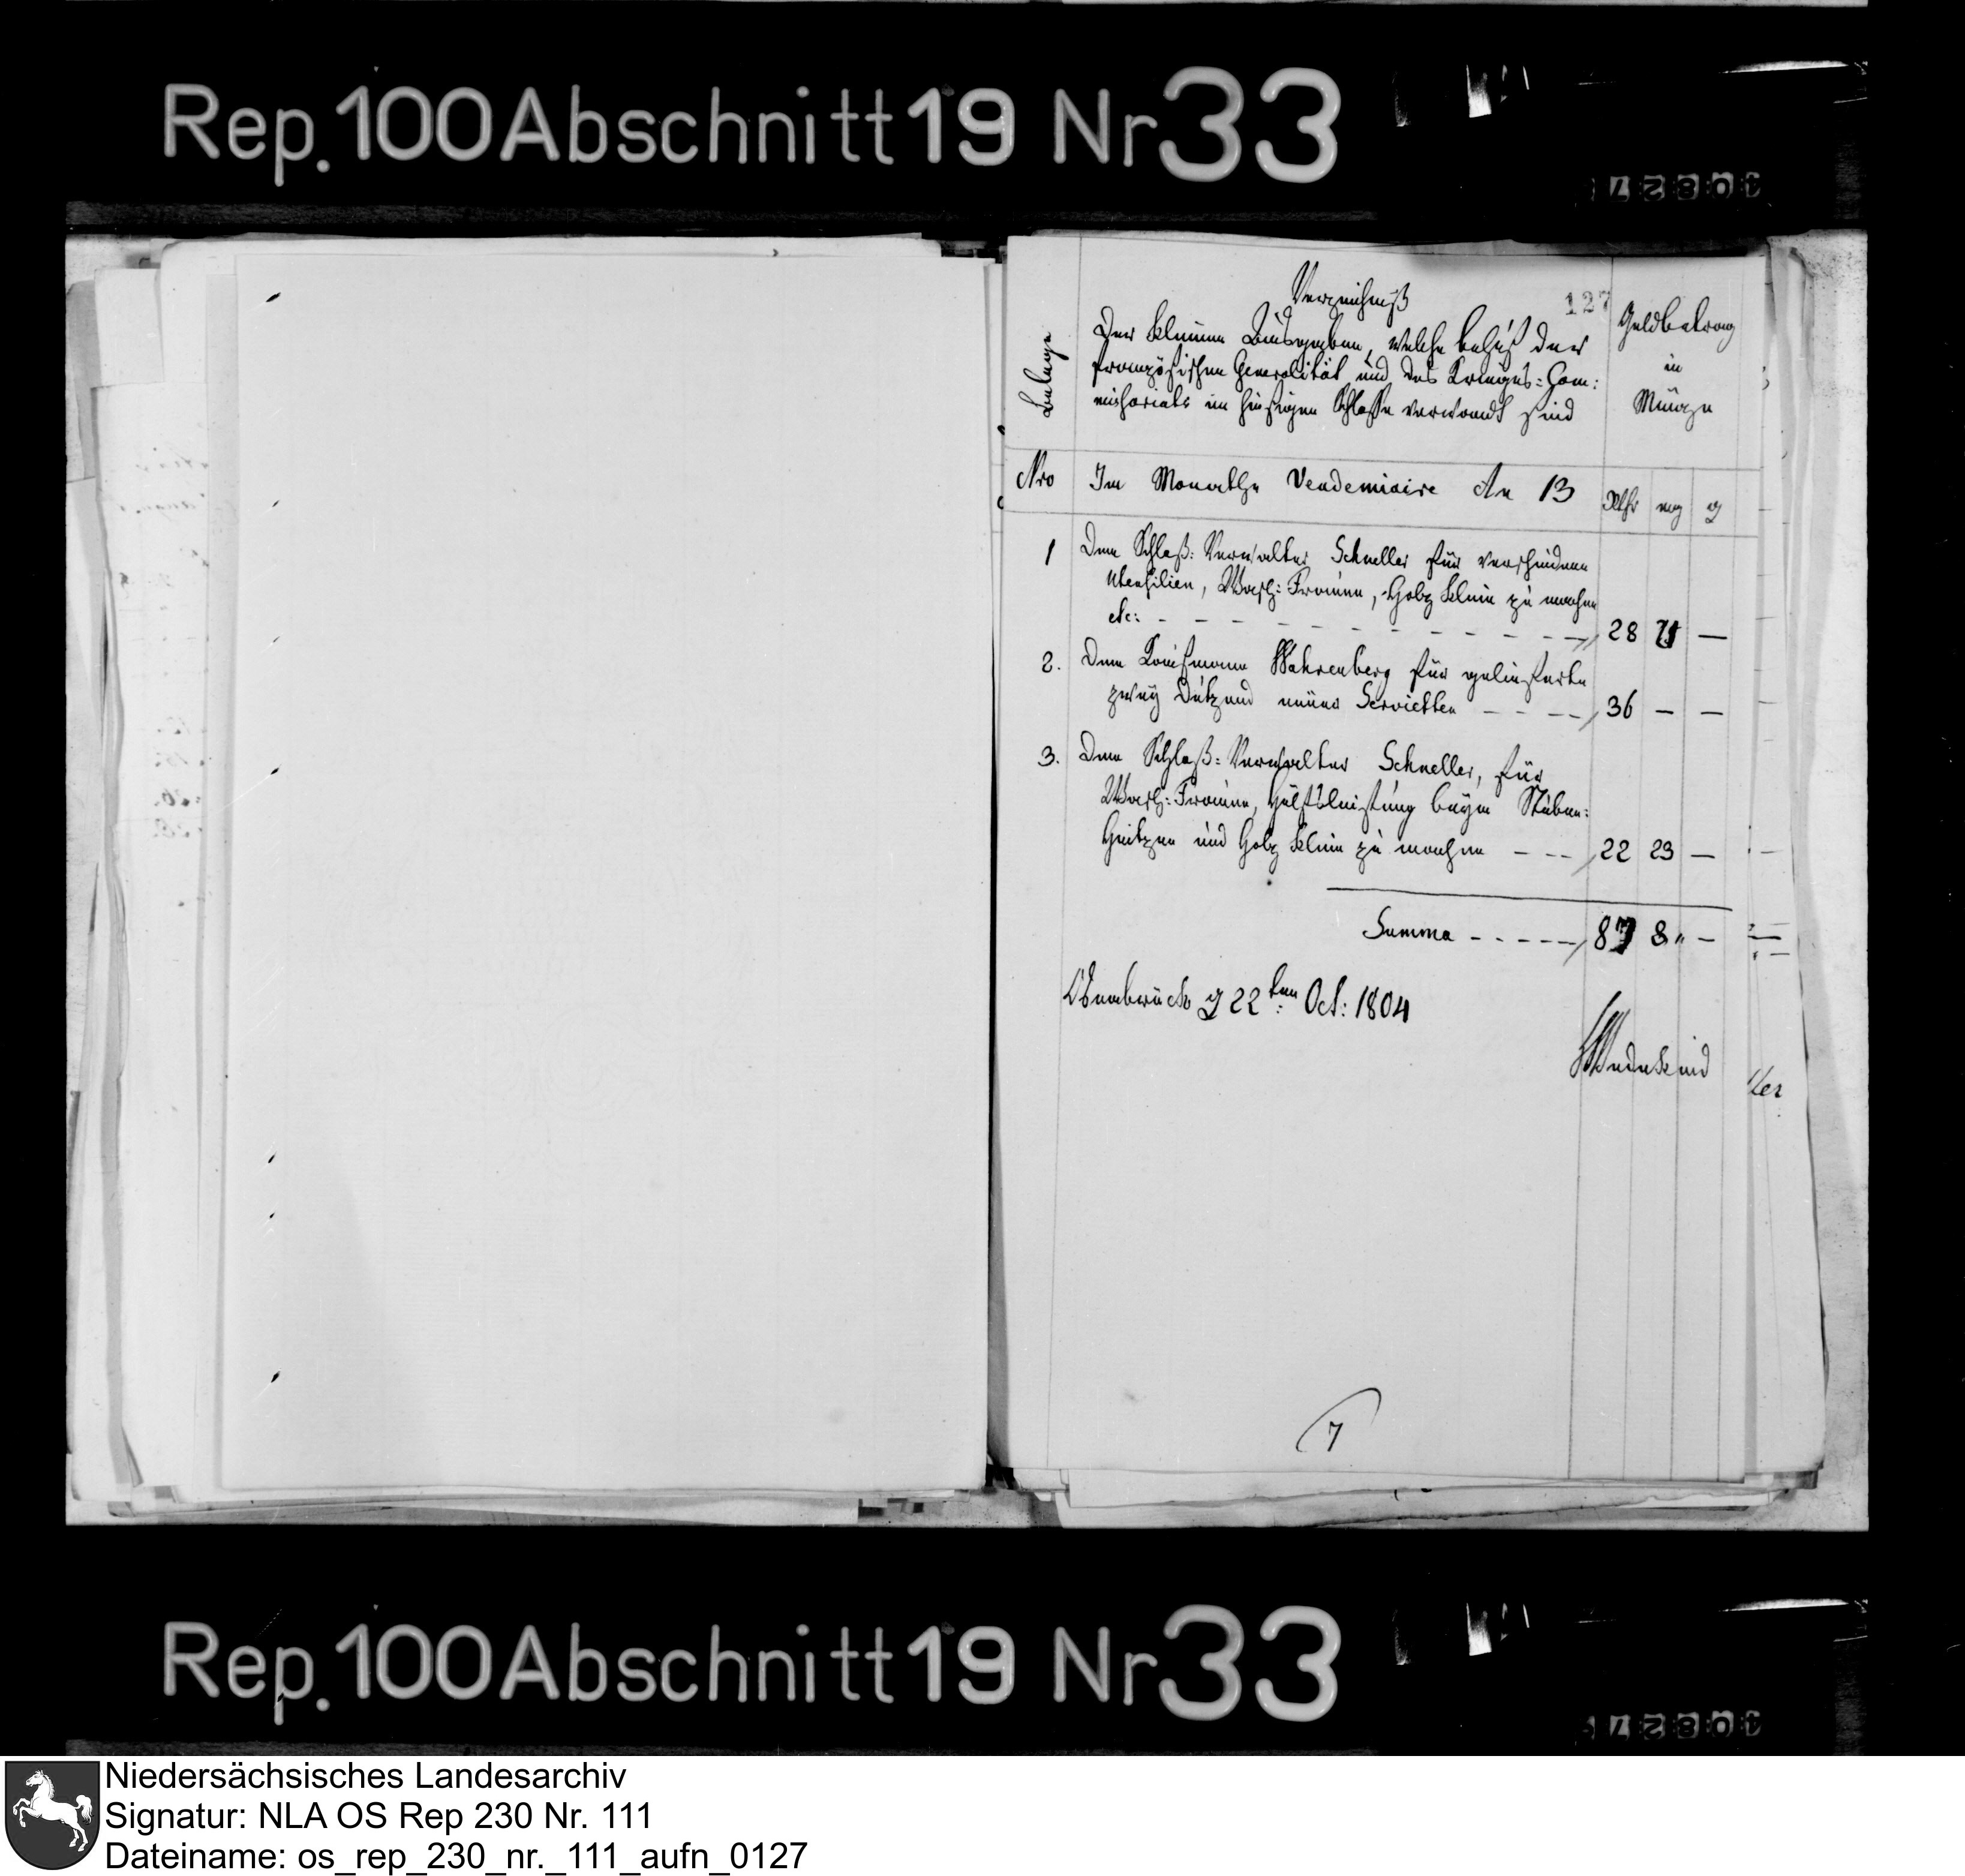 Rep. 100 Abschnitt 19 Nr 33
40827
127
Verzeichniß
Der kleinen Ausgaben, welche behuf der
französischen Generalität und des Krieges=Com:
missariats im hiesigen Schlosse verwandt sind
Belege
Geldbetrag
in
Münze
Nro
Im Monathe Vendemiaire An 13
Rthr mg ₰
1 Dem Schloß: Verwalter Schneller für verschiedene
Utensilien, Wasch: Frauen, Holz klein zu machen
etc: - - - - - - - - - - 28 —
2. Dem Kaufmann Wahrenberg für gelieferte
zwey Dutzend neuer Servietten - - - - 36 — —
3. Dem Schloß: Verwalter Schneller, für
Wasch: Frauen, Hülfsleistung beym Stuben:
Heitzen und Holz klein zu machen - - - 22 23 —
Summa - - - - - 87 8 „ —
Osnabrück ₰ 22ten Oct: 1804
Wedekind
ller
7
Rep. 100 Abschnitt 19 Nr 33
40827
Niedersächsisches Landesarchiv
Signatur: NLA OS Rep 230 Nr. 111
Dateiname: os_rep_230_nr._111_aufn_0127